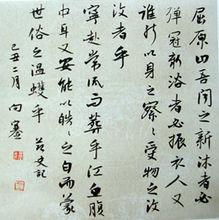 屈原曰吾聞之新沐者必
彈冠新浴者必振衣人又
誰能以身之察々受物之汶
汶者乎
寧赴常流而葬乎江魚腹
中耳又安能以皓々之白而蒙
世俗之溫蠖乎 史記
己丑二月